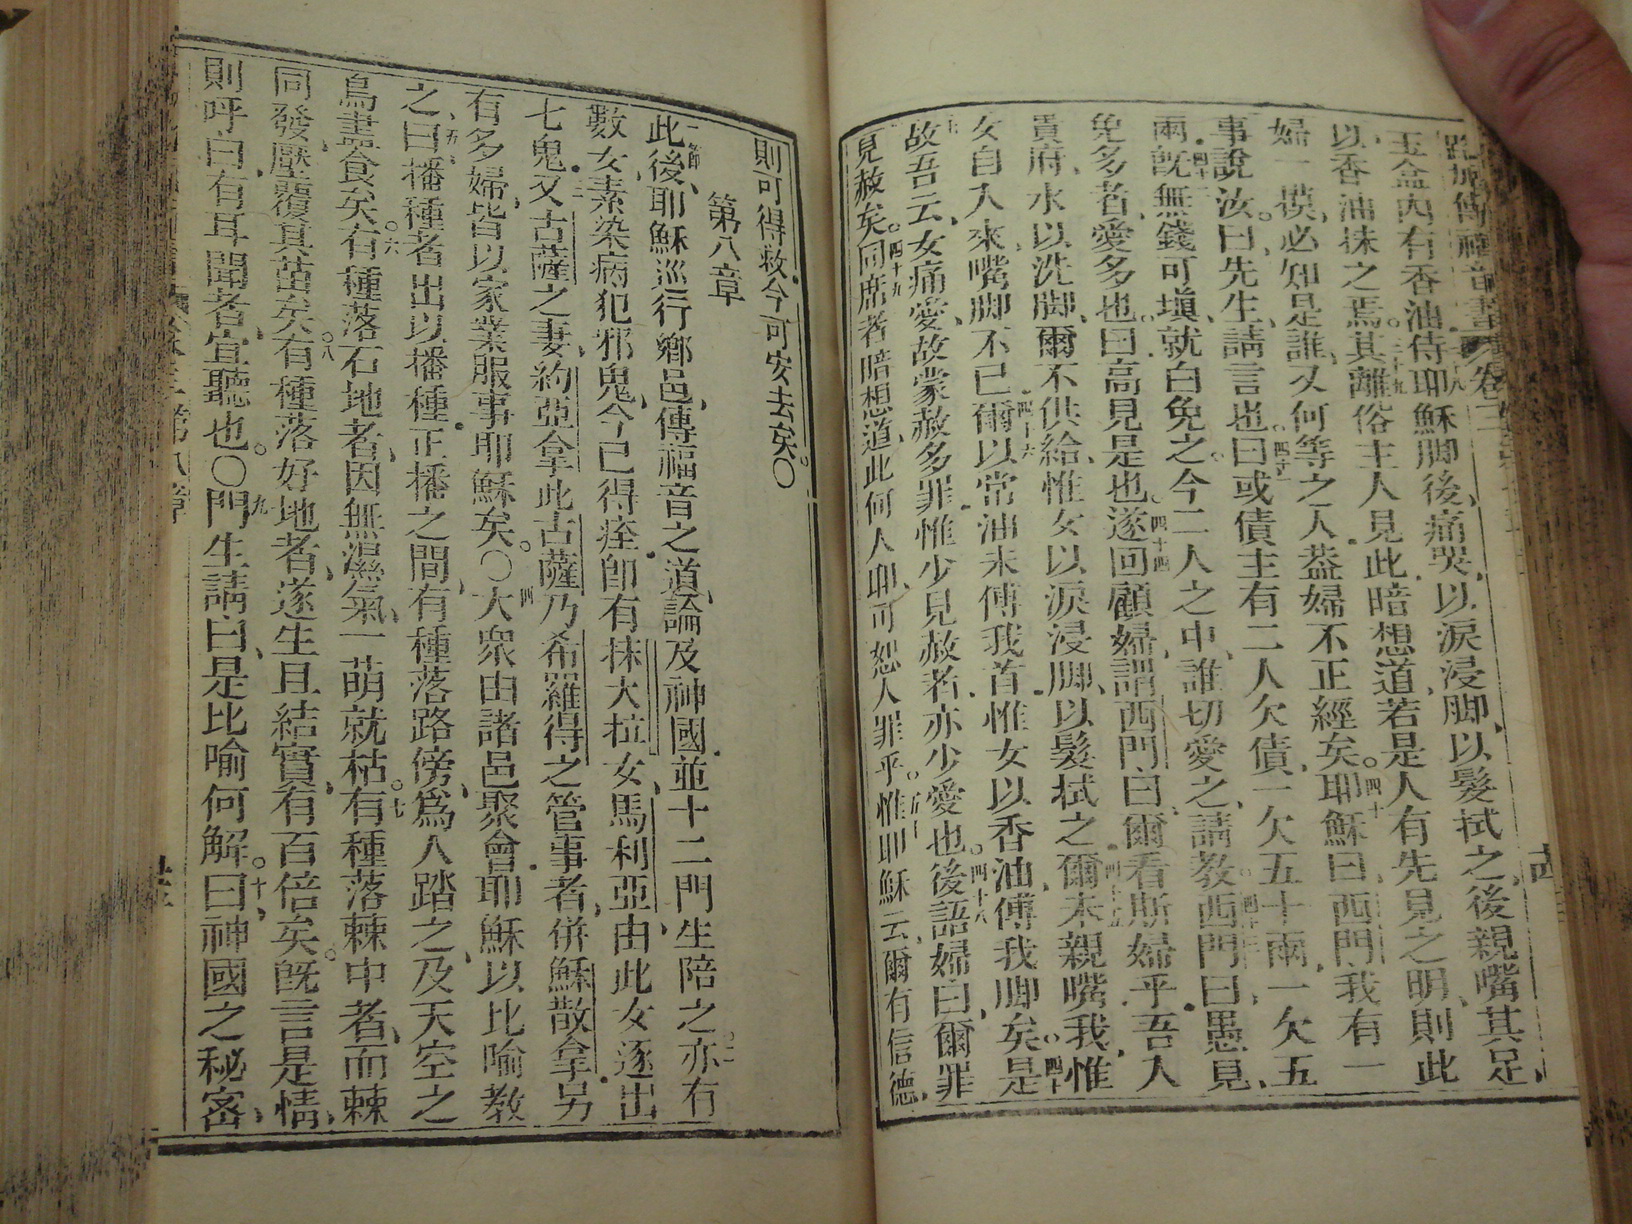 玉盒內有香油侍耶穌脚後痛哭以淚浸脚以髮拭之後親嘴其足
以香油抹之焉其離俗主人見此暗想道若是人有先見之明則此
婦一摸必知是誰又何等之人蓋婦不正經矣耶穌曰西門我有一
事說汝曰先生請言也曰或債主有二人欠債一欠五十兩一欠五
兩旣無錢可塡就白免之今二人之中誰切愛之請教西門曰愚見
免多者愛多也曰高見是也遂回顧婦謂西門曰爾看斯婦乎吾入
貴府水以洗脚爾不供給惟女以淚浸脚以髮拭之爾未親嘴我惟
女自入來嘴脚不已爾以常油未傅我首惟女以香油傅我脚矣是
故吾云女痛愛故蒙赦多罪惟少見赦者亦少愛也後語婦曰爾罪
見赦矣同席者暗想道此何人耶可恕人罪乎惟耶穌云爾有信德
則可得救今可安去矣〇
第八章
此後耶穌巡行鄉邑傳福音之道論及神國並十二門生陪之亦有
數女素染病犯邪鬼今已得痊卽有抹大拉女馬利亞由此女逐出
七鬼又古薩之妻約亞拿此古薩乃希羅得之管事者併穌散拿另
有多婦皆以家業服事耶穌矣〇大衆由諸邑聚會耶穌以比喻教
之曰播種者出以播種正播之間有種落路傍爲人踏之及天空之
鳥盡食矣有種落石地者因無濕氣一萌就枯有種落棘中者而棘
同發壓覆其苗矣有種落好地者遂生且結實有百倍矣旣言是情
則呼曰有耳聞者宜聽也〇門生請曰是比喻何解曰神國之秘密